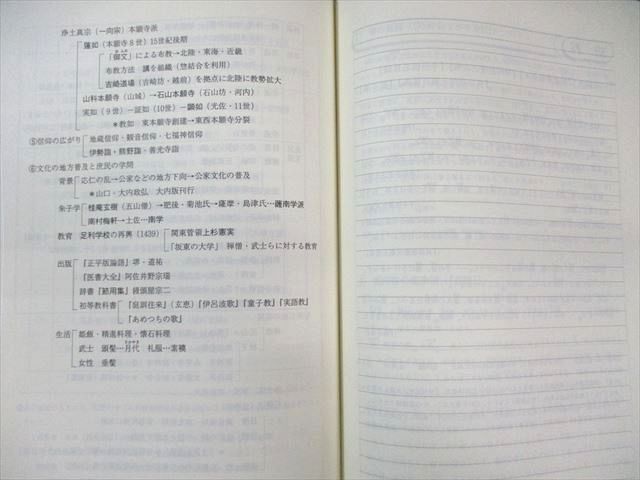 浄土真宗（一向宗）本願寺派
蓮如（本願寺8世）15世紀後期
「御文」による布教→北陸・東海・近畿
布教方法　講を組織（惣結合を利用）
吉崎道場（吉崎坊・越前）を拠点に北陸に教勢拡大
山科本願寺（山城）→石山本願寺（石山坊・河内）
実如（9世）―証如（10世）―顕如（光佐・11世）
＊教如　東本願寺創建→東西本願寺分裂
⑤信仰の広がり　地蔵信仰・観音信仰・七福神信仰
伊勢詣・熊野詣・善光寺詣
⑥文化の地方普及と庶民の学問
背景　応仁の乱→公家などの地方下向→公家文化の普及
＊山口・大内政弘　大内版刊行
朱子学　桂庵玄樹（五山僧）→肥後・菊池氏→薩摩・島津氏…薩南学派
南村梅軒→土佐…南学
教育　足利学校の再興（1439）　関東管領上杉憲実
「坂東の大学」　禅僧・武士らに対する教育
出版　『正平版論語』堺・道祐
『医書大全』阿佐井野宗瑞
辞書『節用集』饅頭屋宗二
初等教科書　『庭訓往来』（玄恵）『伊呂波歌』『童子教』『実語教』
『あめつちの歌』
生活　姫飯・精進料理・懐石料理
武士　頭髪…月代　礼服…素襖
女性　垂髪